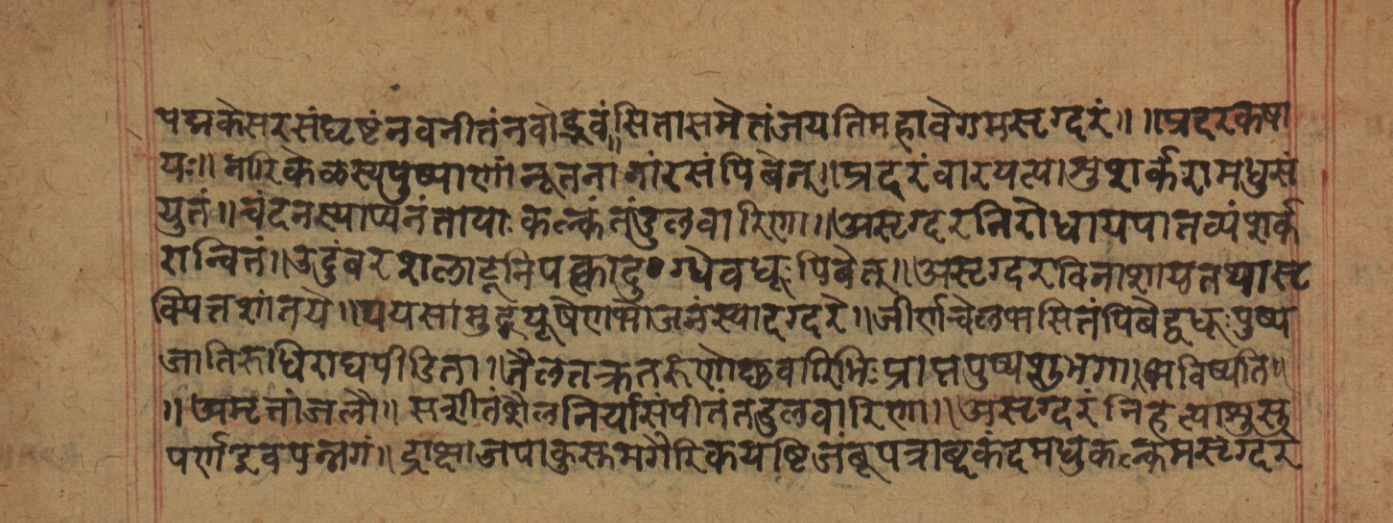 पद्मकेसरसंघृष्टंनवनीतंनवोद्भवं॥सितासमेतंजयतिमहावेगमसृग्दरं॥॥प्रदरकषा
यः॥नारिकेळस्यपुष्पाणांनूतनानांरसंपिबेत्॥प्रदरंवारयत्याशुशर्करामधुसं
युतं॥चंदनस्याप्यनंतायाःकल्कंतंडुलवारिणा॥असृग्दरनिरोधायपातव्यंशर्क
रान्वितं॥उदुंबरशलाटूनिपक्त्वादुग्धेवधूःपिबेत्॥असृग्दरविनाशायतथासृ
क्पित्तशांतये॥पयसामुद्गयूषेणभोजनंस्यादसृग्दरे॥जीर्णचैलभसितंपिबेद्वधूःपुष्प
जातिरुधिराघपीडिता॥तैलतक्रतरुणोष्णवारिभिःप्राप्तपुष्पशुभगाभविष्यति॥
॥अमृतांजलौ॥सक्षीतंशैलनिर्यासंपीतंतंडुलवारिणा॥असृग्दरंनिहंत्याशुसु
पर्णइवपन्नगं॥द्राक्षाजपाकुसुमगैरिकयष्टिजंबूपत्राब्दकंदमधुकल्कमसृग्दर